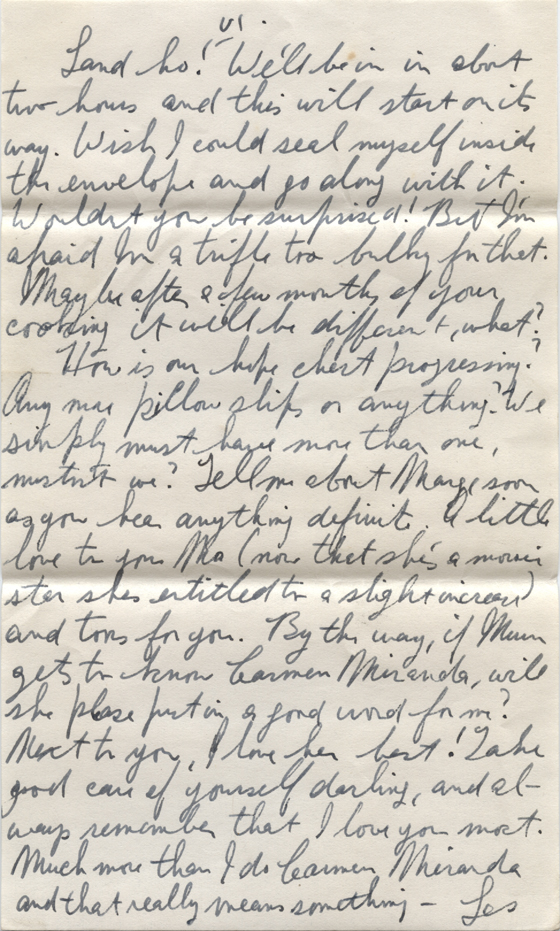 VI.
Land ho! We'll be in in about
two hours and this will start on its
way. Wish I could seal myself inside
the envelope and go along with it.
Wouldn't you be surprised! But I'm
afraid I'm a trifle too bulky for that.
Maybe after a few months of your
cooking it will be different, what?
How is our hope chest progressing?
Any more pillow slips or anything? We
simply must have more than one,
mustn't we? Tell me about Marge soon
as you hear anything definit. A little
love to your Ma (now that she's a movie
star she's entitled to a slight increase)
and tons for you. By the way, if Mum
gets to know Carmen Miranda, will
she please put in a good word for me?
Next to you, I love her best! Take
good care of yourself darling, and al-
ways remember that I love you most.
Much more than I do Carmen Miranda
and that really means something - Les